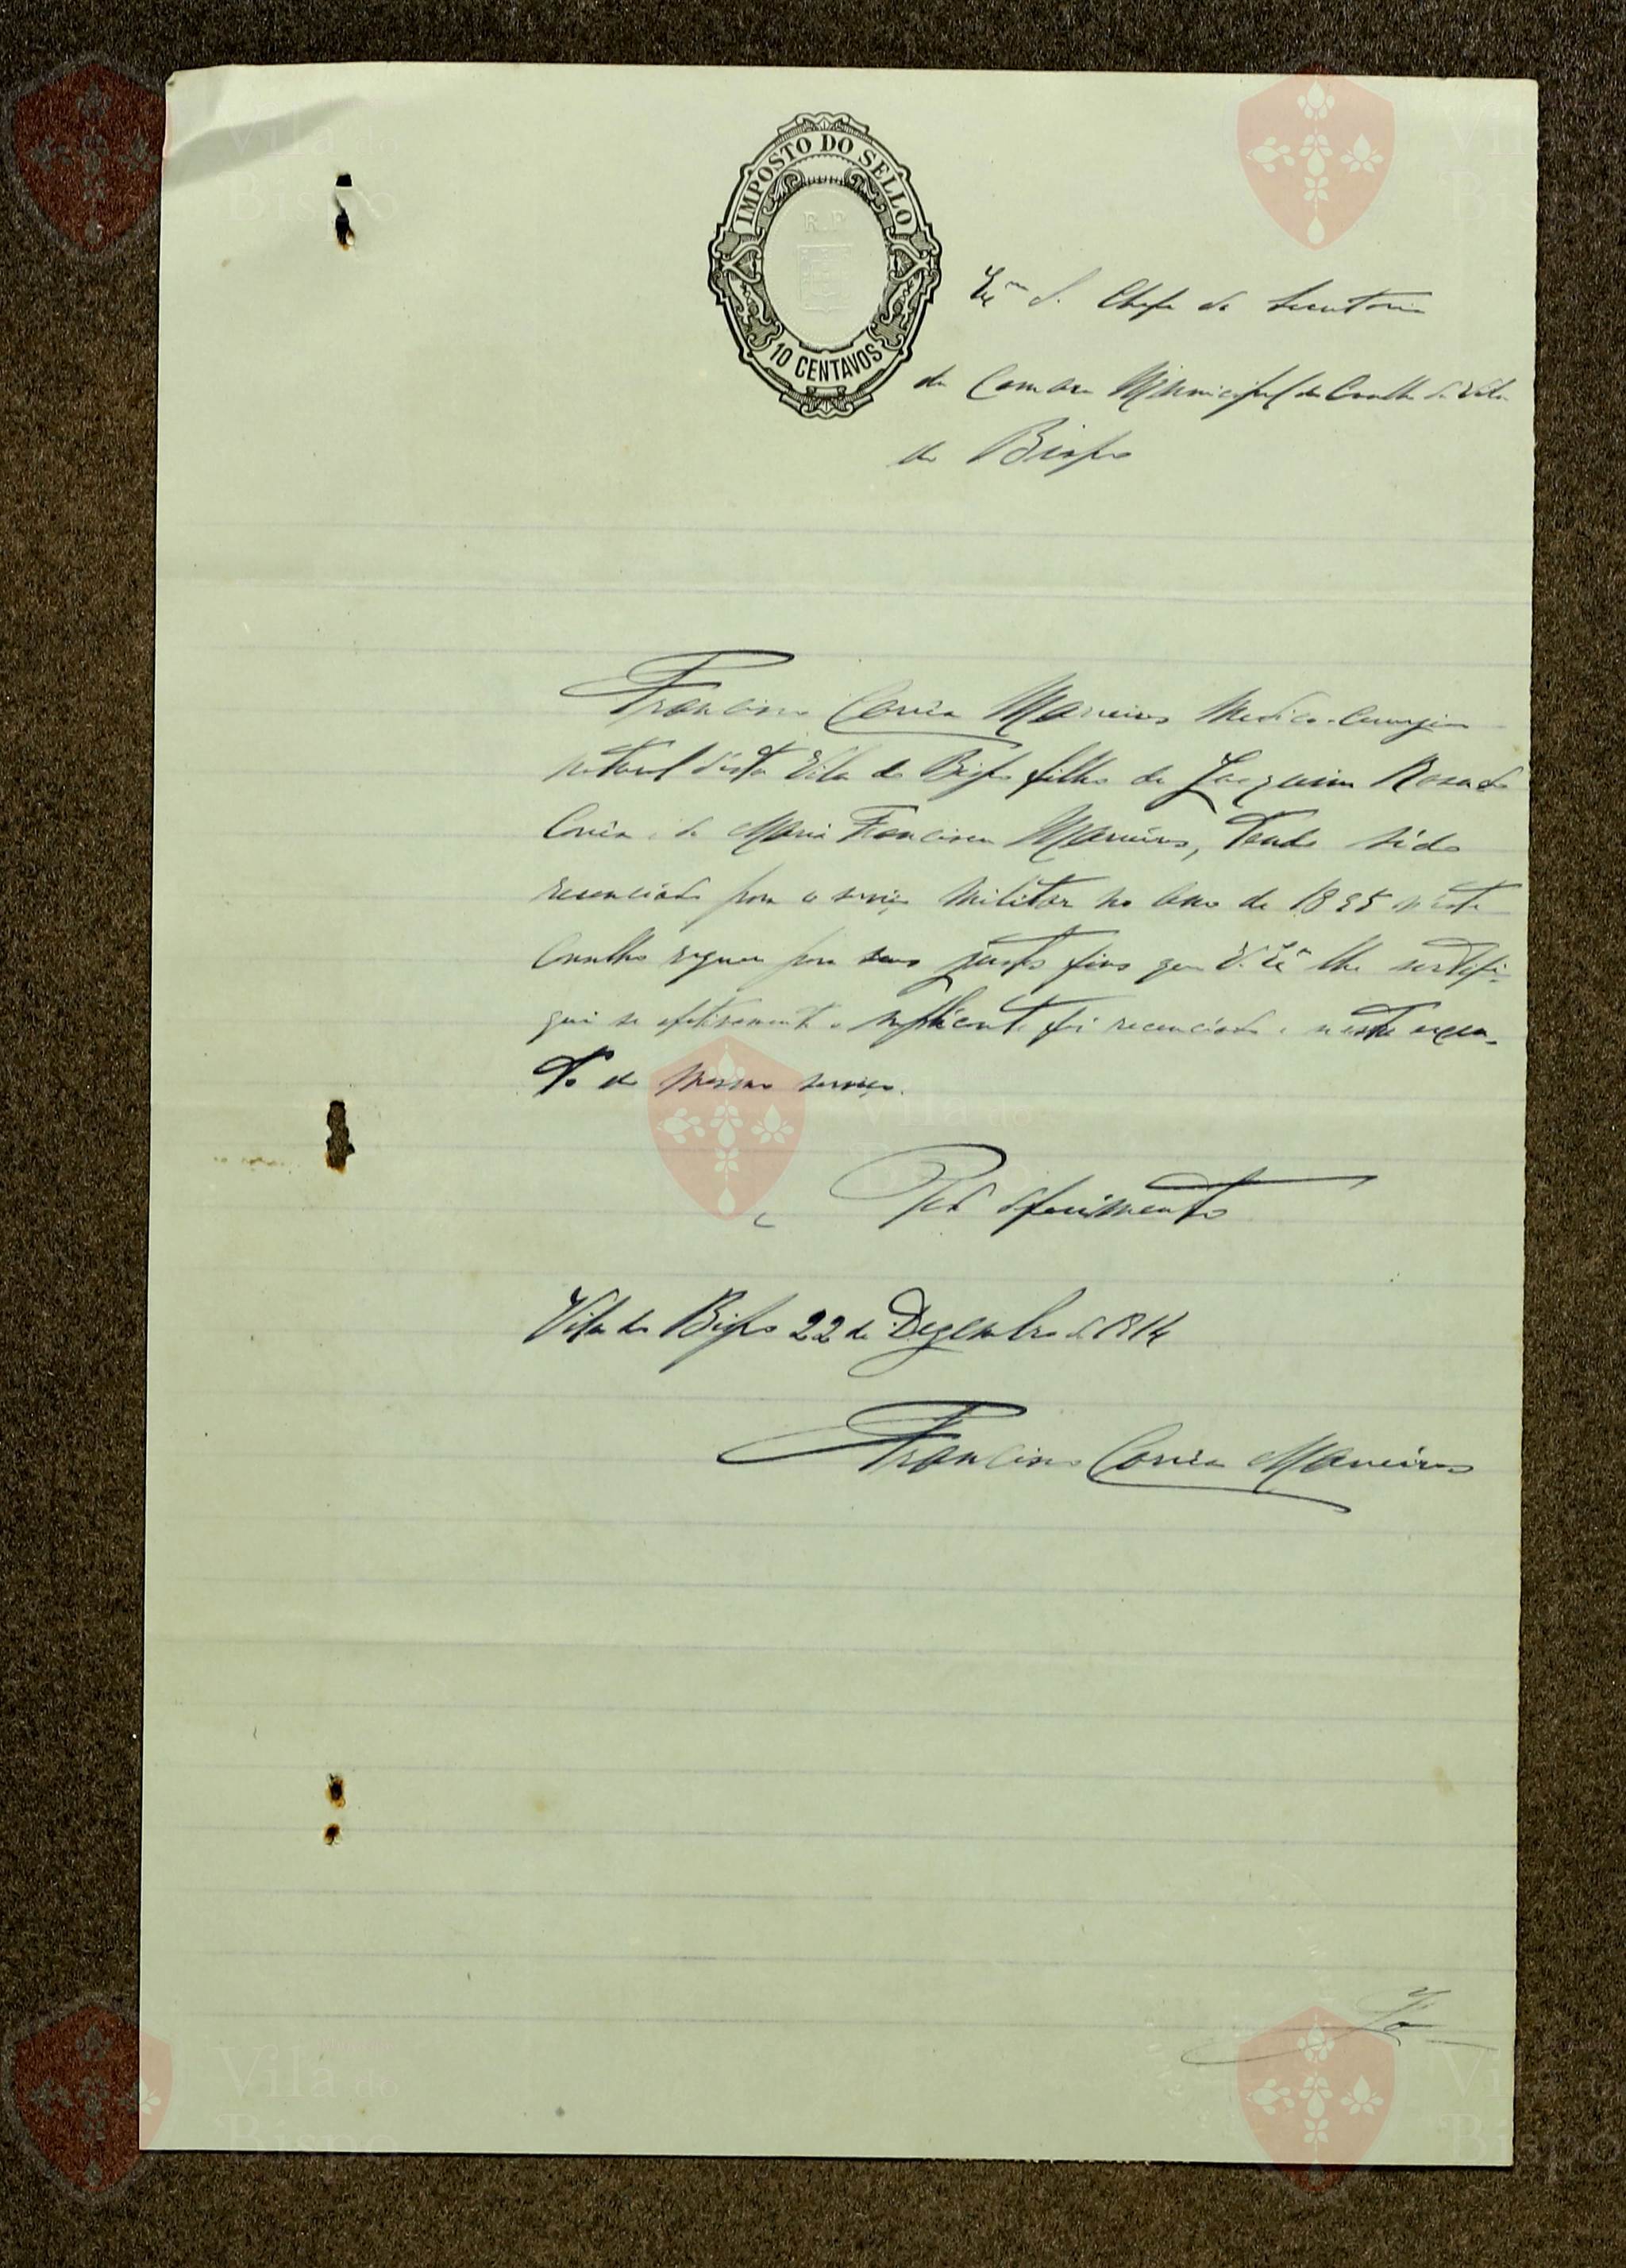 IMPOSTO DO SELLO
R.P.
10 CENTAVOS
Exmo S. Chefe da Secretaria
da Camara Municipal do Concelho de Vila
do Bispo
Francisco Corrêa Marreiros Medico-Cirurgião
natural d'esta Vila do Bispo filho de Joaquim Rosado
Corrêa e de Maria Francisca Marreiros, Tendo sido
recenciado para o serviço militar no ano de 1895 n'este
Concelho requer para seus justos fins que V. Exa lhe sertifi-
que se efetivamente o suplicante foi recenciado e
to do mesmo serviço.
Pede deferimento
Vila do Bispo 22 de Dezembro de 1914
Francisco Corrêa Marreiros
Vila do
Bispo